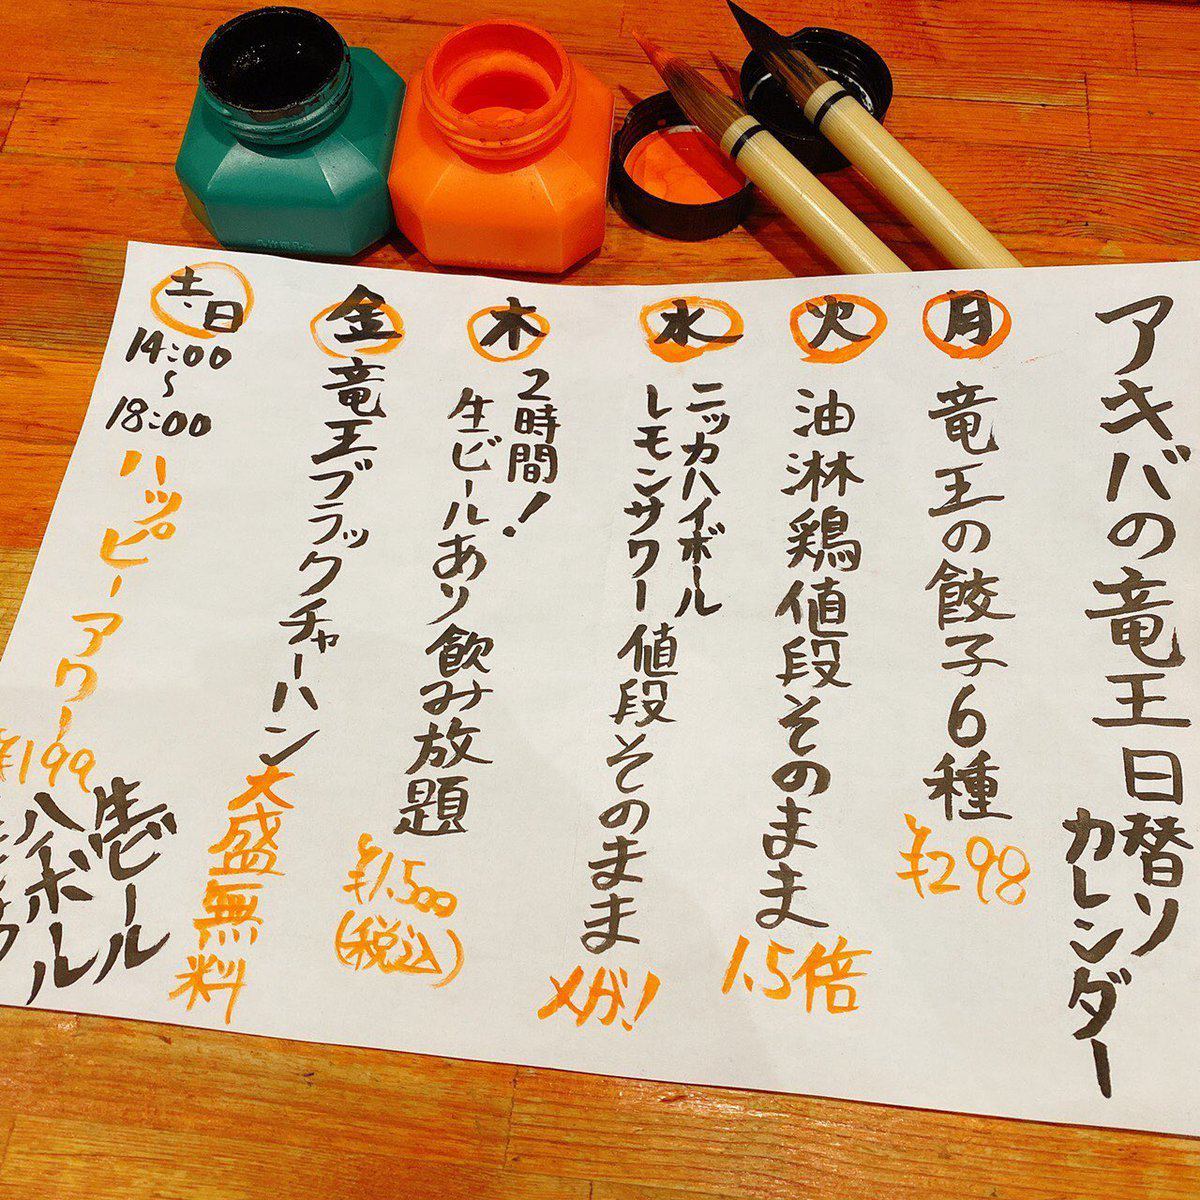 アキバの竜王日替り
カレンダー
月
竜王の餃子6種
¥298
火
油淋鶏値段そのまま
1.5倍
水
ニッカハイボール
レモンサワー値段そのまま
メガ!
木
2時間!
生ビールあり飲み放題
¥1,500
(税込)
金
竜王ブラックチャーハン
大盛無料
土・日
14:00
~
18:00
ハッピーアワー
¥199
生ビール
ハイボール